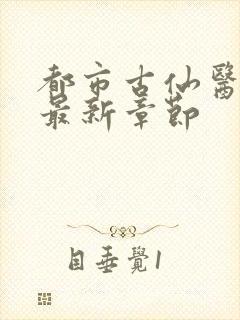 都市古仙醫
最新章節
目垂覺1